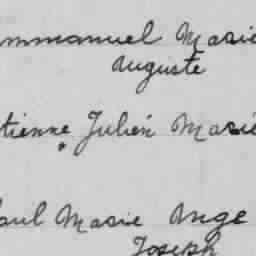 mmanuel Marie
Auguste
tienne Julien Marie
aul Marie Ange
Joseph